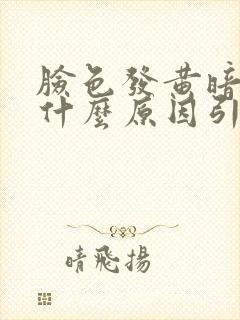 臉色發黃暗
什麼原因引
晴飛揚